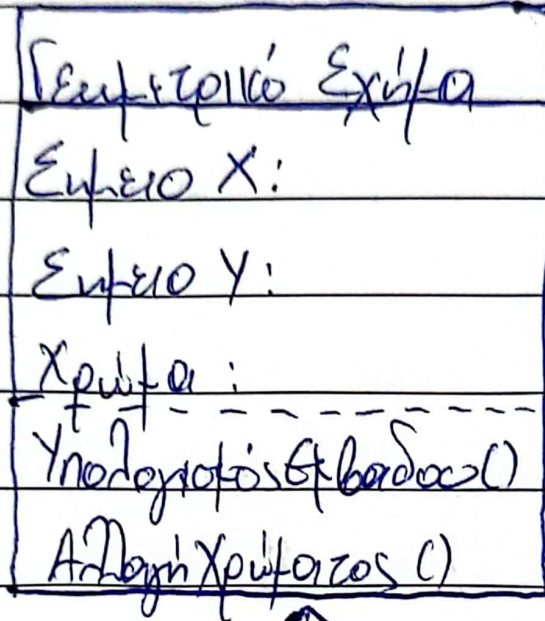 Γεωμετρικό Σχήμα
Σημειο Χ:
Σημειο Υ:
Χρώμα :
ΥπολογισμόςΕμβαδου()
ΑλλαγήΧρώματος ()